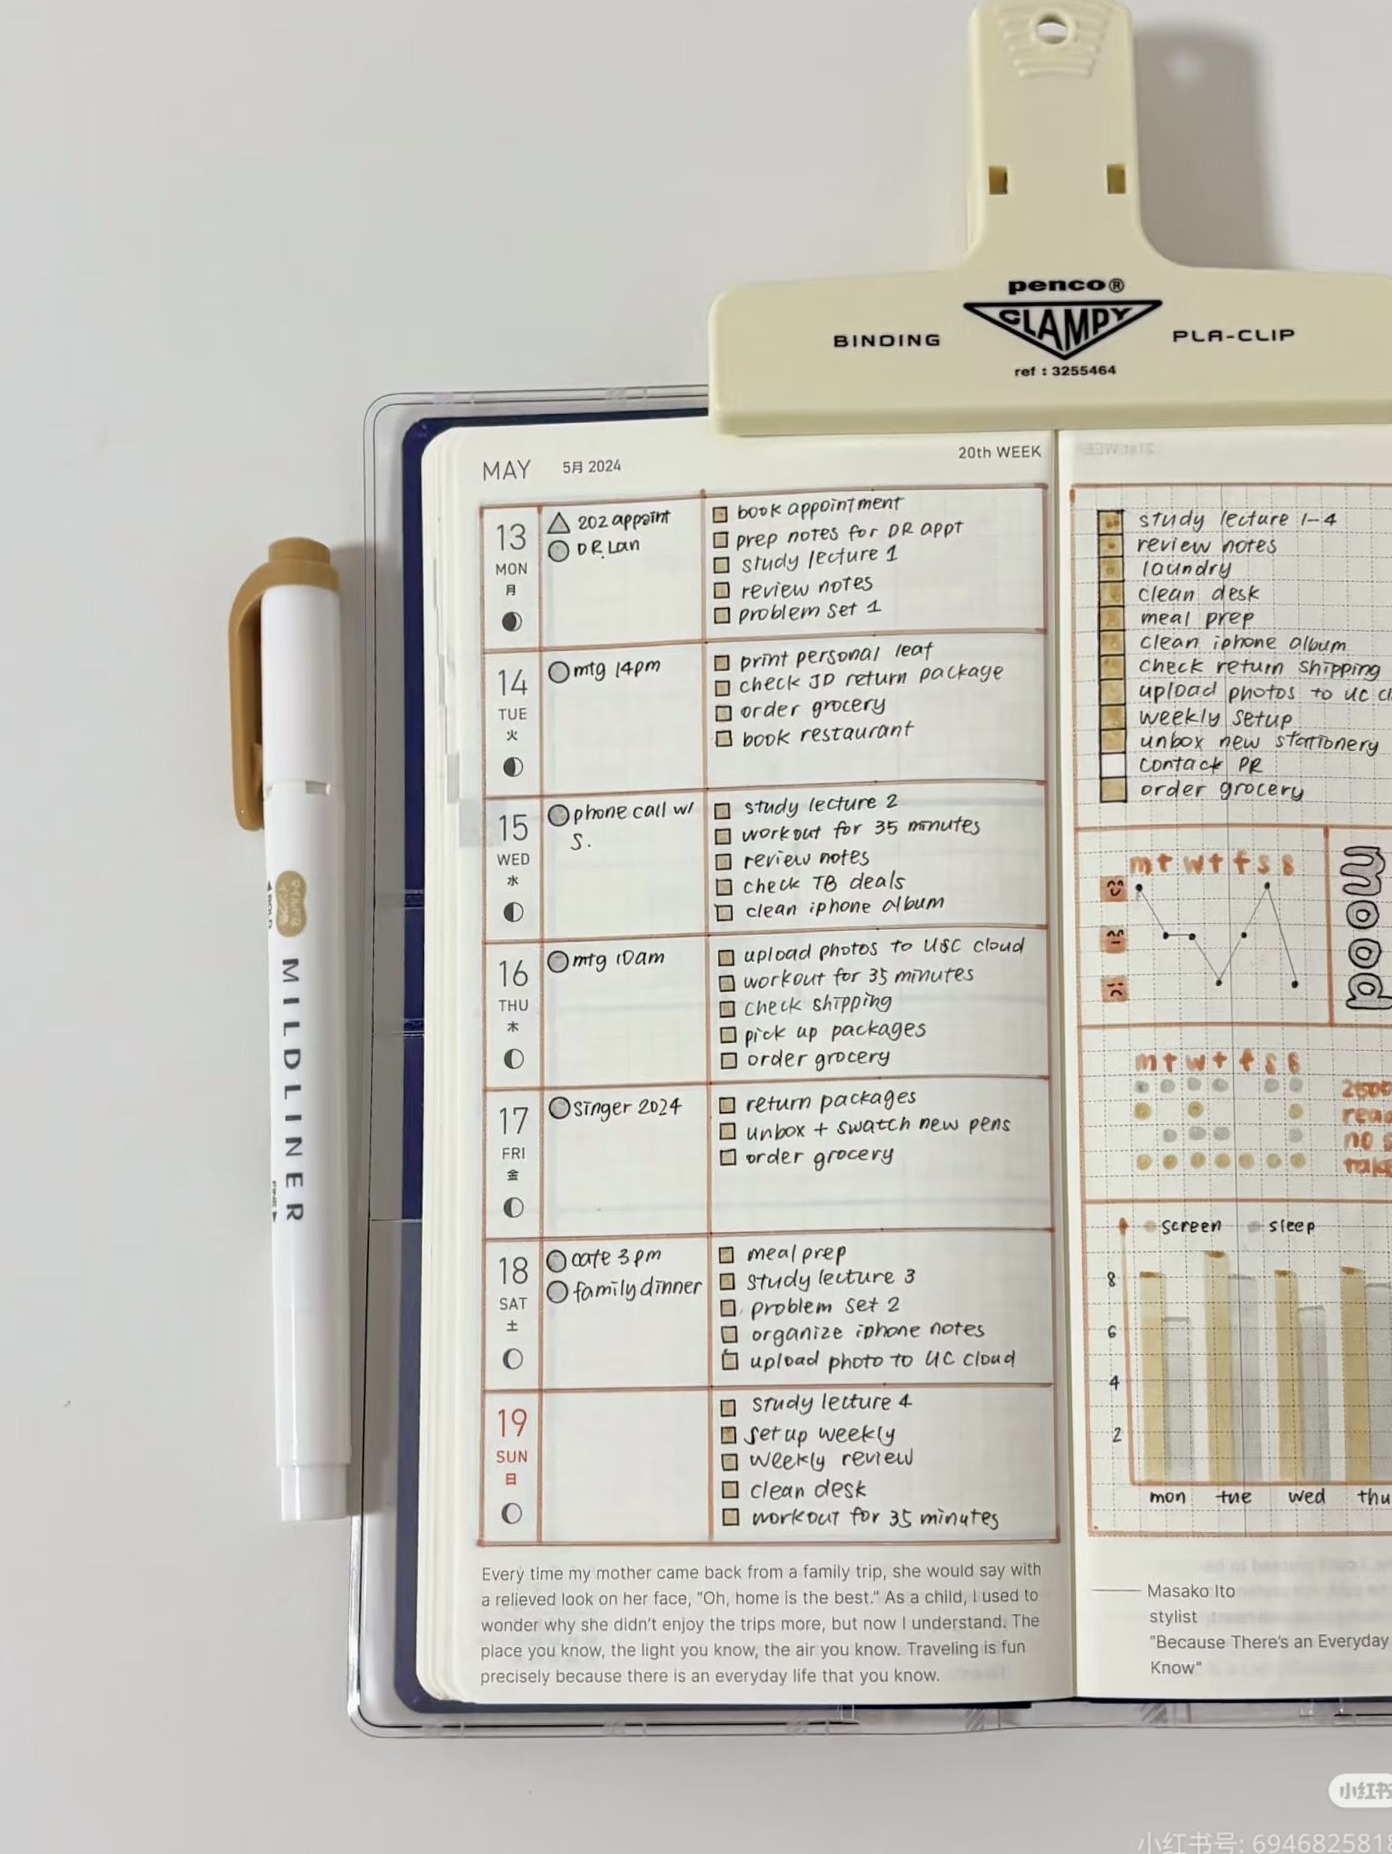 penco®
BINDING CLAMPY PLA-CLIP
ref : 3255464
MAY 5月 2024 20th WEEK
13
MON
月
△ 202 appoint
DR. Lan
book appointment
prep notes for DR appt
study lecture 1
review notes
problem set 1
14
TUE
火
mtg 14pm
print personal leaf
check JD return package
order grocery
book restaurant
15
WED
水
phone call w/
S.
study lecture 2
workout for 35 minutes
review notes
check TB deals
clean iphone album
16
THU
木
mtg 10am
upload photos to U&C cloud
workout for 35 minutes
check shipping
pick up packages
order grocery
17
FRI
金
Singer 2024
return packages
unbox + swatch new pens
order grocery
18
SAT
土
cafe 3pm
family dinner
meal prep
study lecture 3
problem set 2
organize iphone notes
upload photo to UC cloud
19
SUN
日
study lecture 4
set up weekly
weekly review
clean desk
workout for 35 minutes
Every time my mother came back from a family trip, she would say with
a relieved look on her face, "Oh, home is the best." As a child, I used to
wonder why she didn't enjoy the trips more, but now I understand. The
place you know, the light you know, the air you know. Traveling is fun
precisely because there is an everyday life that you know.
study lecture 1-4
review notes
laundry
clean desk
meal prep
clean iphone album
check return shipping
upload photos to UC
weekly setup
unbox new stationery
contact PR
order grocery
m t w t f s s
mood
m t w t f s s
no
screen sleep
8
6
4
2
mon tue wed thu
Masako Ito
stylist
"Because There's an Everyday
Know"
MILDLINER
小红书
小红书号: 6946825818